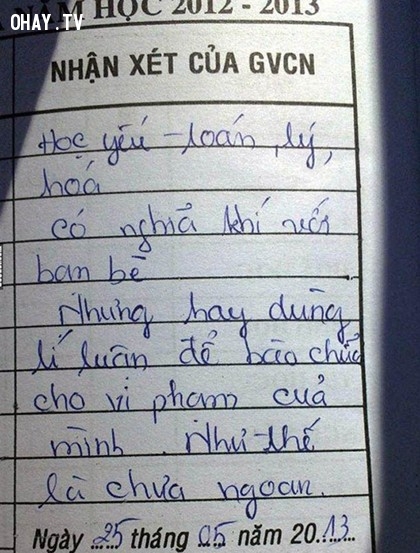 OHAY.TV
NĂM HỌC 2012 - 2013
NHẬN XÉT CỦA GVCN
Học yếu - toán, lý,
hoá
có nghĩa khí với
bạn bè
Nhưng hay dùng
lí luận để bào chữa
cho vi phạm của
mình. Như thế
là chưa ngoan.
Ngày 25 tháng 05 năm 2013